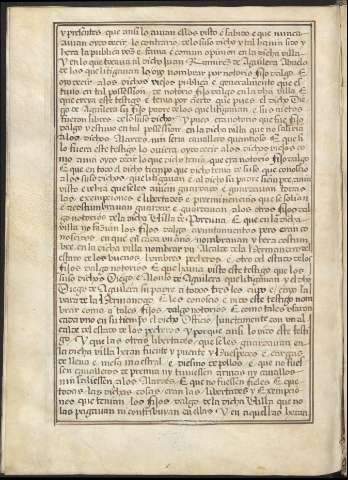 y presentes que ansi lo avian ellos visto e sabido e que nunca
avian oydo dezir lo contrario de lo suso dicho y tal ha sido y
hera la publica voz e fama e comun opinion en la dicha villa
Y en lo que tocava al dicho Juan Ramirez de Aguilera Abuelo
de los que litiguavan lo oyo nombrar por notorio fijo dalgo E
oyo dezir a los dichos viejos publica e generalmente que es-
tuvo en tal possession de notorio fijo dalgo en la dha villa E
que creya este testigo e tenia por cierto que pues el dicho Die-
go de Aguilera su fijo padre de los que litiguavan e sus nietos
fueron libres de lo suso dicho y pues era notorio que fue fijo
dalgo y estuvo en tal possession en la dicha villa que no saldria
a los dichos Alardes ni seria cavallero quantioso E que si
lo fuera este testigo lo oviera oydo dezir a los dichos viejos co-
mo avia oydo dezir lo que dicho tenia que era notorio fijo dalgo
E que en todo el dicho tiempo que dicho tenia de suso que conoscio
a los suso dichos que litiguavan e al dicho su padre siempre avia
visto e vehia que se les avian guardado e guardavan todas
las exempciones e libertades e preminencias que se solian
e acostumbravan guardar e guardavan a los otros fijos dal-
go notorios de la dicha Villa de Porcuna E que en la dicha
villa no hazian los fijos dalgo ayuntamientos pero eran co-
noscidos en que en cada un año nombravan y hera costum-
bre en la dicha villa nombrar un Alcalde de la Hermandad del
estado de los buenos hombres pecheros e otro del estado de los
fijos dalgo notorios E que havia visto este testigo que los
suso dichos Diego e Alonso de Aguilera que litiguavan y el dho
Diego de Aguilera su padre a todos tres les cupo e cayo la
vara de la Hermandad E les conoscio e vido este testigo nom-
brar como a tales fijos dalgo notorios E como tales usaron
cada uno en su tiempo el dicho Officio juntamente con un al
calde del estado de los pecheros Y porque ansi lo vido este testi-
go Y que las otras libertades que se les guardavan en
la dicha villa heran fuente y puente y Huespedes e cargas
de llena e mesa maestral e diezmo de pollos e que no fue-
ssen cavalleros de premia ny tuviessen armas ny cavallos
ni saliessen a los Alardes E que no fuessen fieles E que
todas las dichas cosas eran las libertades y Exempcio-
nes que tenian los fijos dalgo de la dicha Villa que no
las pagavan ni contribuyan en ellas Y en aquellas heran